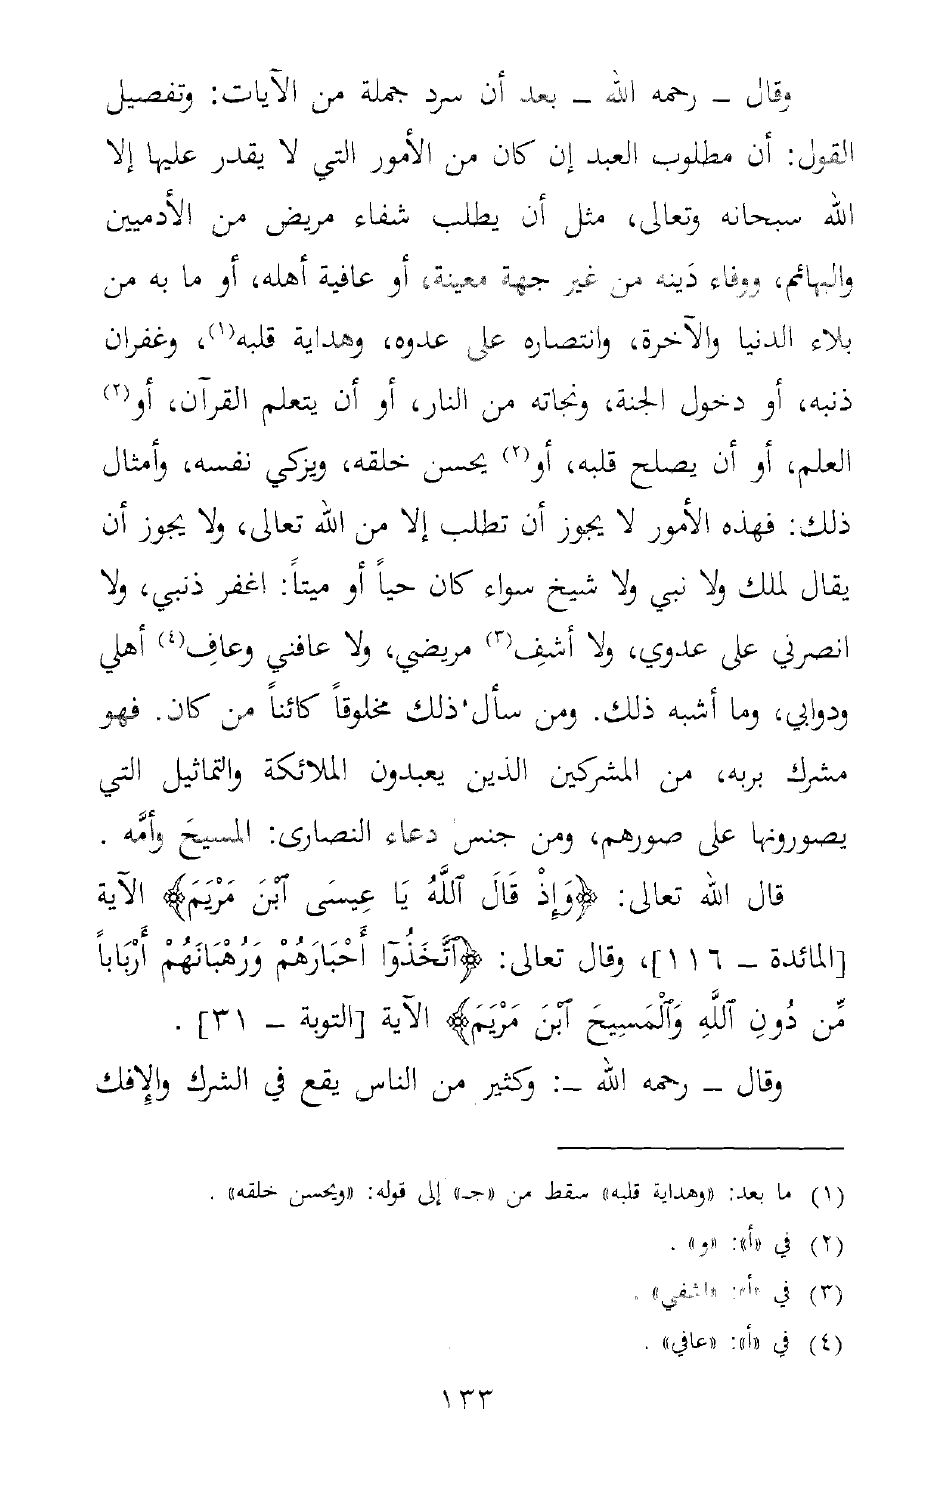 وقال ـ رحمه الله ـ بعد أن سرد جملة من الآيات: وتفصيل
القول: أن مطلوب العبد إن كان من الأمور التي لا يقدر عليها إلا
الله سبحانه وتعالى، مثل أن يطلب شفاء مريض من الأدميين
والبهائم، ووفاء دَينه من غير جهة معينة، أو عافية أهله، أو ما به من
بلاء الدنيا والآخرة، وانتصاره على عدوه، وهداية قلبه(١)، وغفران
ذنبه، أو دخول الجنة، ونجاته من النار، أو أن يتعلم القرآن، أو(٢)
العلم، أو أن يصلح قلبه، أو(٢) يحسن خلقه، ويزكي نفسه، وأمثال
ذلك: فهذه الأمور لا يجوز أن تطلب إلا من الله تعالى، ولا يجوز أن
يقال لملك ولا نبي ولا شيخ سواء كان حياً أو ميتاً: اغفر ذنبي، ولا
انصرني على عدوي، ولا أشفِ(٣) مريضي، ولا عافني وعافِ(٤) أهلي
ودوابي، وما أشبه ذلك. ومن سأل ذلك مخلوقاً كائناً من كان. فهو
مشرك بربه، من المشركين الذين يعبدون الملائكة والتماثيل التي
يصورونها على صورهم، ومن جنس دعاء النصارى: المسيحَ وأمَّه .
قال الله تعالى: ﴿وَإِذْ قَالَ ٱللَّهُ يَا عِيسَى ٱبْنَ مَرْيَمَ﴾ الآية
[المائدة ـ ١١٦]، وقال تعالى: ﴿ٱتَّخَذُوٓا أَحْبَارَهُمْ وَرُهْبَانَهُمْ أَرْبَاباً
مِّن دُونِ ٱللَّهِ وَٱلْمَسِيحَ ٱبْنَ مَرْيَمَ﴾ الآية [التوبة ـ ٣١] .
وقال ـ رحمه الله ـ: وكثير من الناس يقع في الشرك والإفك
(١) ما بعد: «وهداية قلبه» سقط من «جـ» إلى قوله: «ويحسن خلقه» .
(٢) في «أ»: «و» .
(٣) في «أ»: «اشفي» .
(٤) في «أ»: «عافي» .
١٣٣